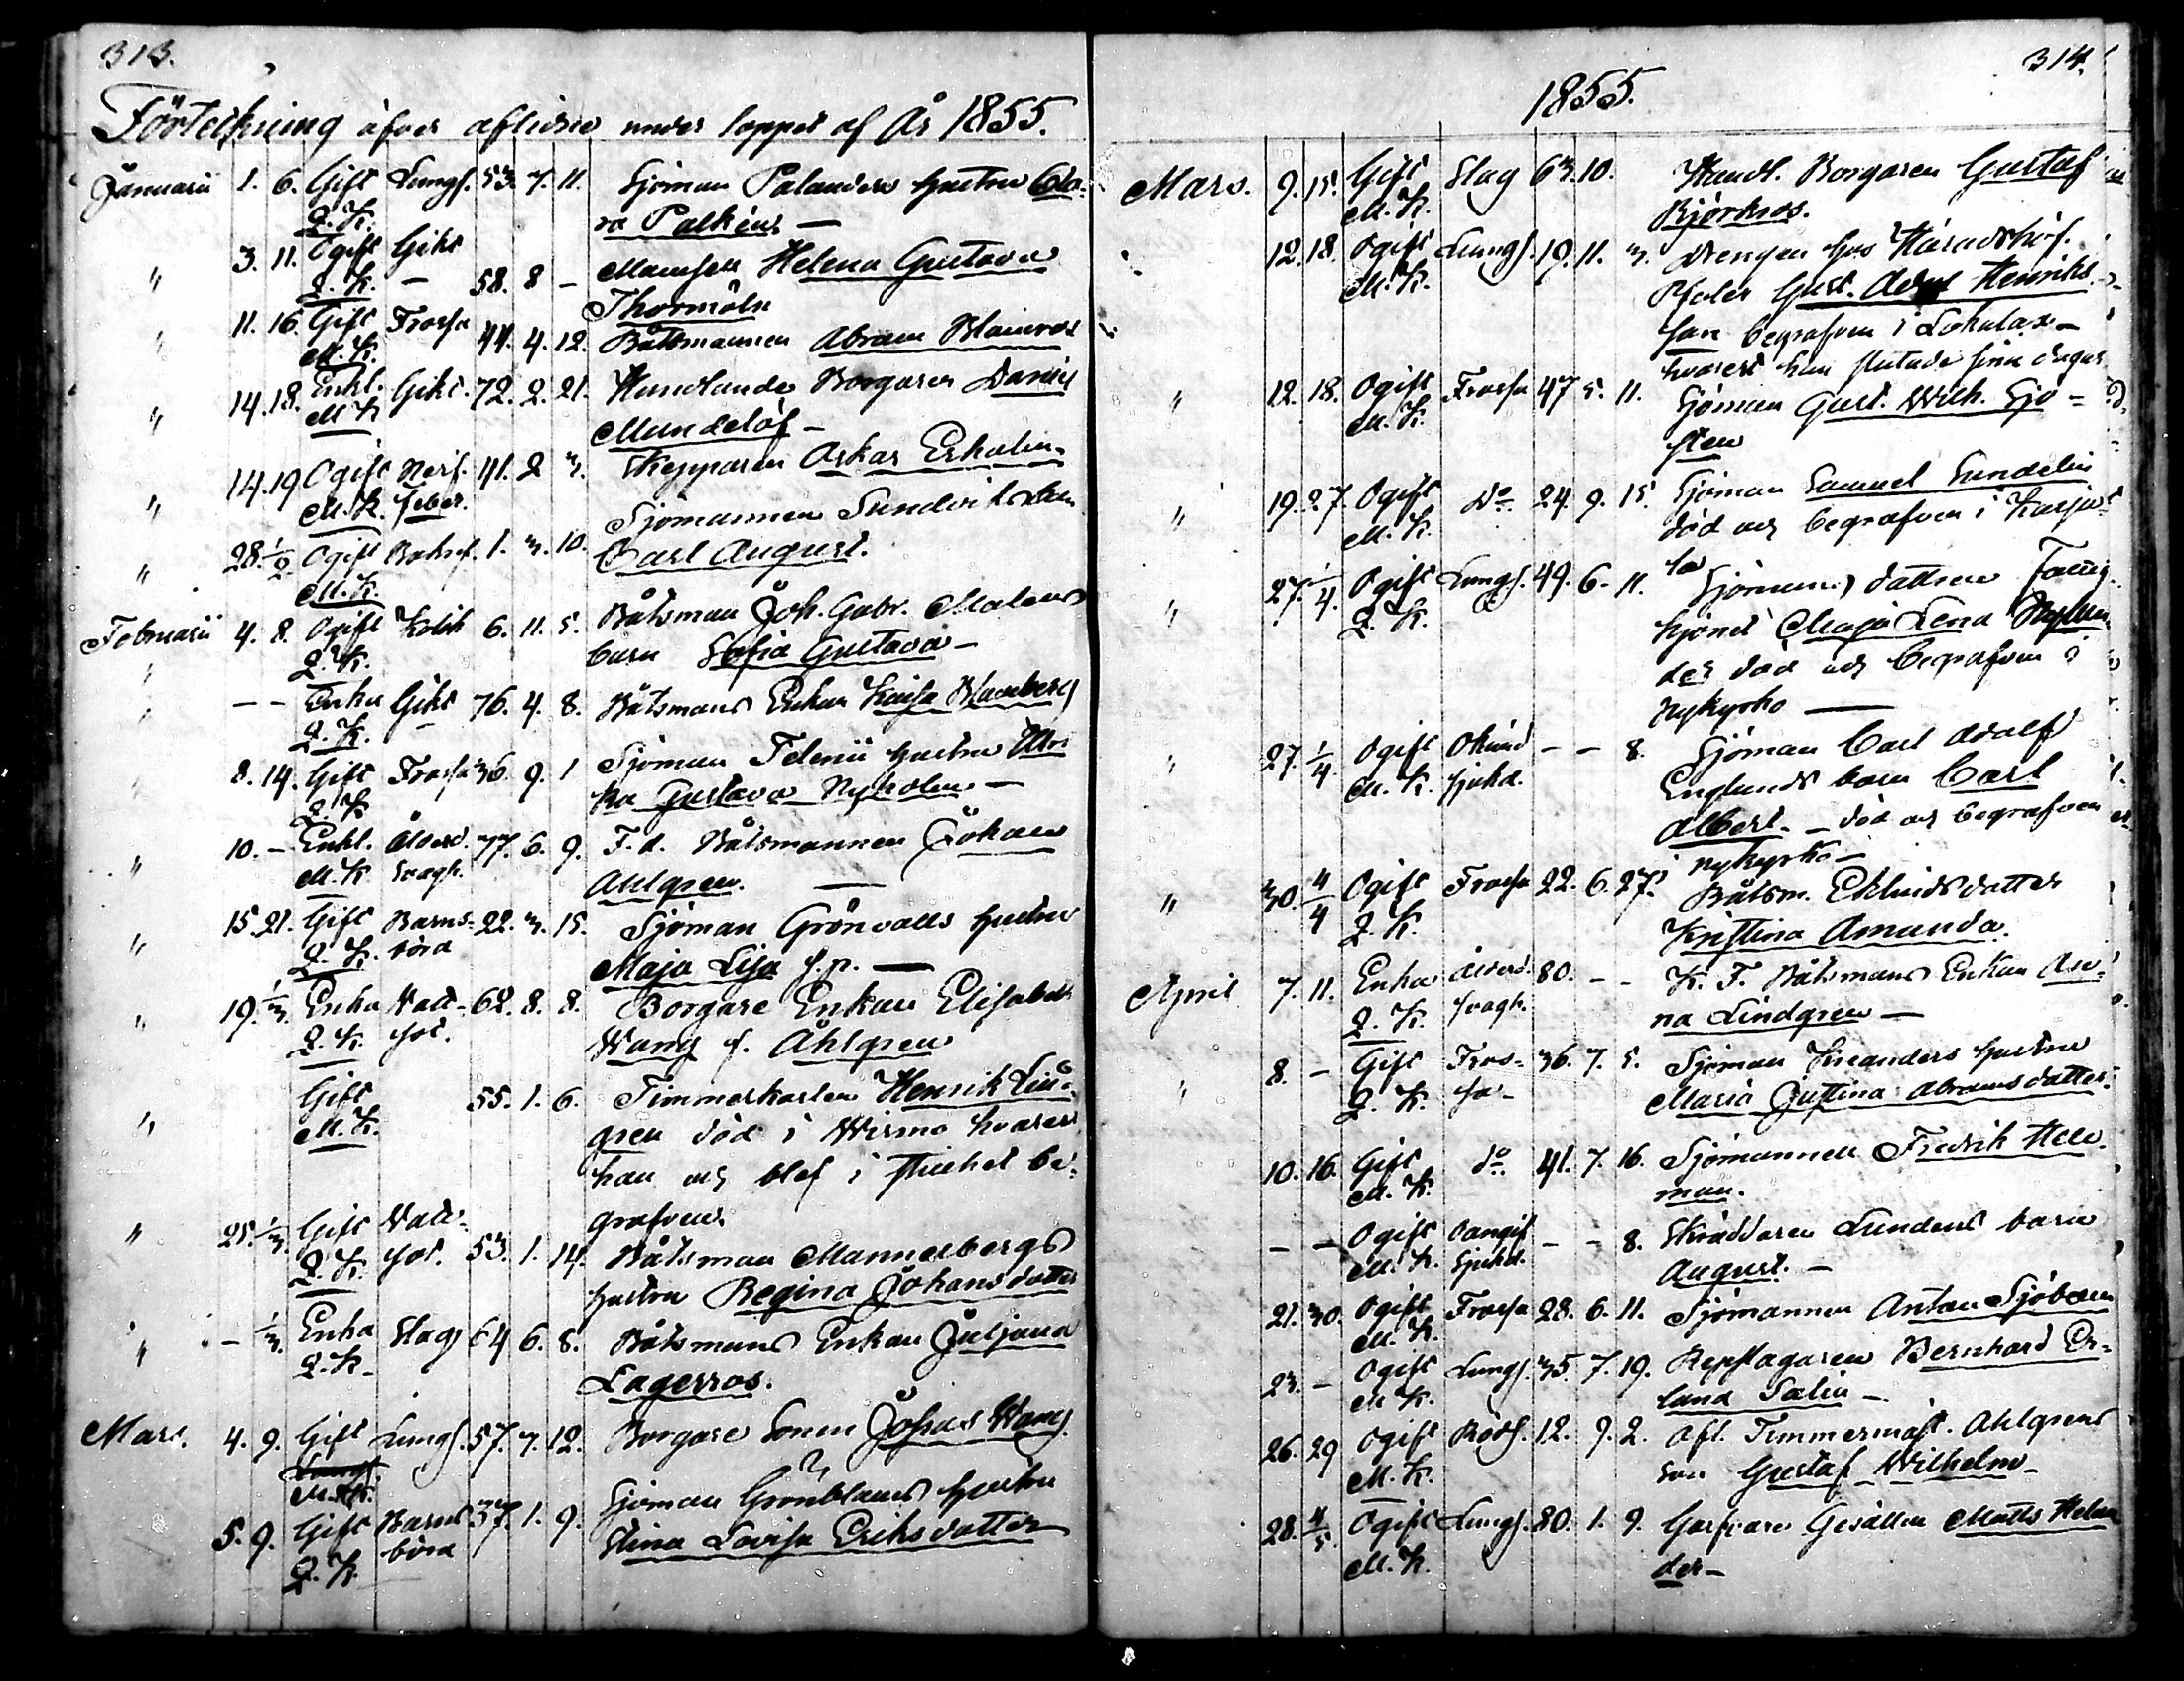 313.
Förteckning öfver aflidne under loppet af År 1855.
Januarii 1. 6. Gift Lungs. 53. 7. 11. Sjöman Palanders hustru Cla-
Q. K. ra Palhéns —
" 3. 11. Ogift Gikt 58. 8 - Mamsell Helena Gustava
Q. K. — Thormöln
" 11. 16. Gift Frossa 44. 4. 12. Båtsmannen Abram Blomros
M. K.
" 14. 18. Enkl. Gikt. 72. 2. 21. Handlande Borgaren Daniel
M. K Mundelöf —
" 14. 19 Ogift Nerf. 41. 2 3. Skepparen Oskar Erholm
M. K. feber.
" 28. 1/2. Ogift 1. 3. 10. Sjömannen Sundvik
M. K. Carl August.
Februarii 4. 8. Ogift Kolik 6. 11. 5. Båtsman Joh. Gabr. Malens
Q. K. barn Sofia Gustava —
" - - Enka Gikt 76. 4. 8. Båtsmans Enkan Kaisa Blomberg
Q. K.
" 8. 14. Gift Frossa 36. 9. 1 Sjöman hustru Ulri
Q. K ka Gustava Nyholm —
" 10. - Enkl. Ålderd. 77. 6. 9. F. d. Båtsmannen Johan
M. K. svagh. Ahlgren. —
" 15. 21. Gift Barns- 22. 3. 15. Sjöman Grönvalls hustru
Q. K. börd Maja Lisa —
" 19. 1/3. Enka Vatt- 62. 8. 8. Borgare Enkan Elisabeth
Q. K. sot. Wang f. Åhlgren
" Gift 55. 1. 6. Timmerkarlen Henrik Lin-
M. K. gren död i Wirmo hvarest
han och blef i stillhet be-
grafven.
" 25. 1/3. Gift Vatt- 53. 1. 14. Båtsman Mannerbergs
Q. K. sot. hustru Regina Johansdotter
" - 1/3. Enka Slag 64 6. 8. Båtsmans Enkan Juljana
Q. K. Lagerros.
Mars. 4. 9. Gift Lungs. 57. 7. 12. Borgare Sonen Josias Wang.
M. K.
5. 9. Gift Barns 37. 1. 9. Sjöman Grönbloms hustru
Q. K. börd Stina Lovisa Eriksdotter
314.
1855.
Mars. 9. 15. Gift Slag 63. 10. Handl. Borgaren Gustaf
M. K. Björkros.
12. 18. Ogift Lungs. 19. 11. 3. Drengen hos Häradshöf.
M. K. Pfaler Gust. Adolf Henriks-
son begrafven i Lokalax —
hvarest han slutade sina dagar
" 12. 18. Ogift Frossa 47 5. 11. Sjöman Gust. Wilh. Sjö-
M. K. sten
" 19. 27. Ogift do 24. 9. 15. Sjöman Samuel Sundelin
M. K. död och begrafven i Karja-
la
" 27. 1/4. Ogift Lungs. 49. 6. 11. Sjömans dottren
Q. K. hjonet Maja Lena Nylan
der död och begrafven i
Nykyrko —
" 27. 1/4. Ogift Okänd - - 8. Sjöman Carl Adolf
M. K. sjukd. Englunds barn Carl
Albert. — död och begrafven
i Nykyrko —
" 30. 4/4 Ogift Frossa 22. 6. 27. Båtsm. Eklunds dotter
Q. K. Kristina Amanda.
April 7. 11. Enka Ålderd. 80. - - K. F. Båtsmans Enkan
Q. K. svagh. na Lindgren —
" 8. - Gift Fros- 36. 7. 5. Sjöman hustru
Q. K. sa- Maria Justina Abramsdotter
10. 16. Gift do. 41. 7. 16. Sjömannen Fredrik Hell-
M. K. man.
- - Ogift Oangif - - 8. Skräddaren Lundens barn
M. K. Sjukd. August. —
21. 30. Ogift Frossa 28. 6. 11. Sjömannen Anton Sjöbom
M. K.
23. - Ogift Lungs. 35. 7. 19. Repslagaren Bernhard Er-
M K. land Salin —
26. 29 Ogift Röds. 12. 9. 2. Afl. Timmermäst. Ahlgrens
M. K. son Gustaf Wilhelm —
28. 4/5. Ogift Lungs. 80. 1. 9. Garfvare Gesällen Matts Helan
M. K. der —